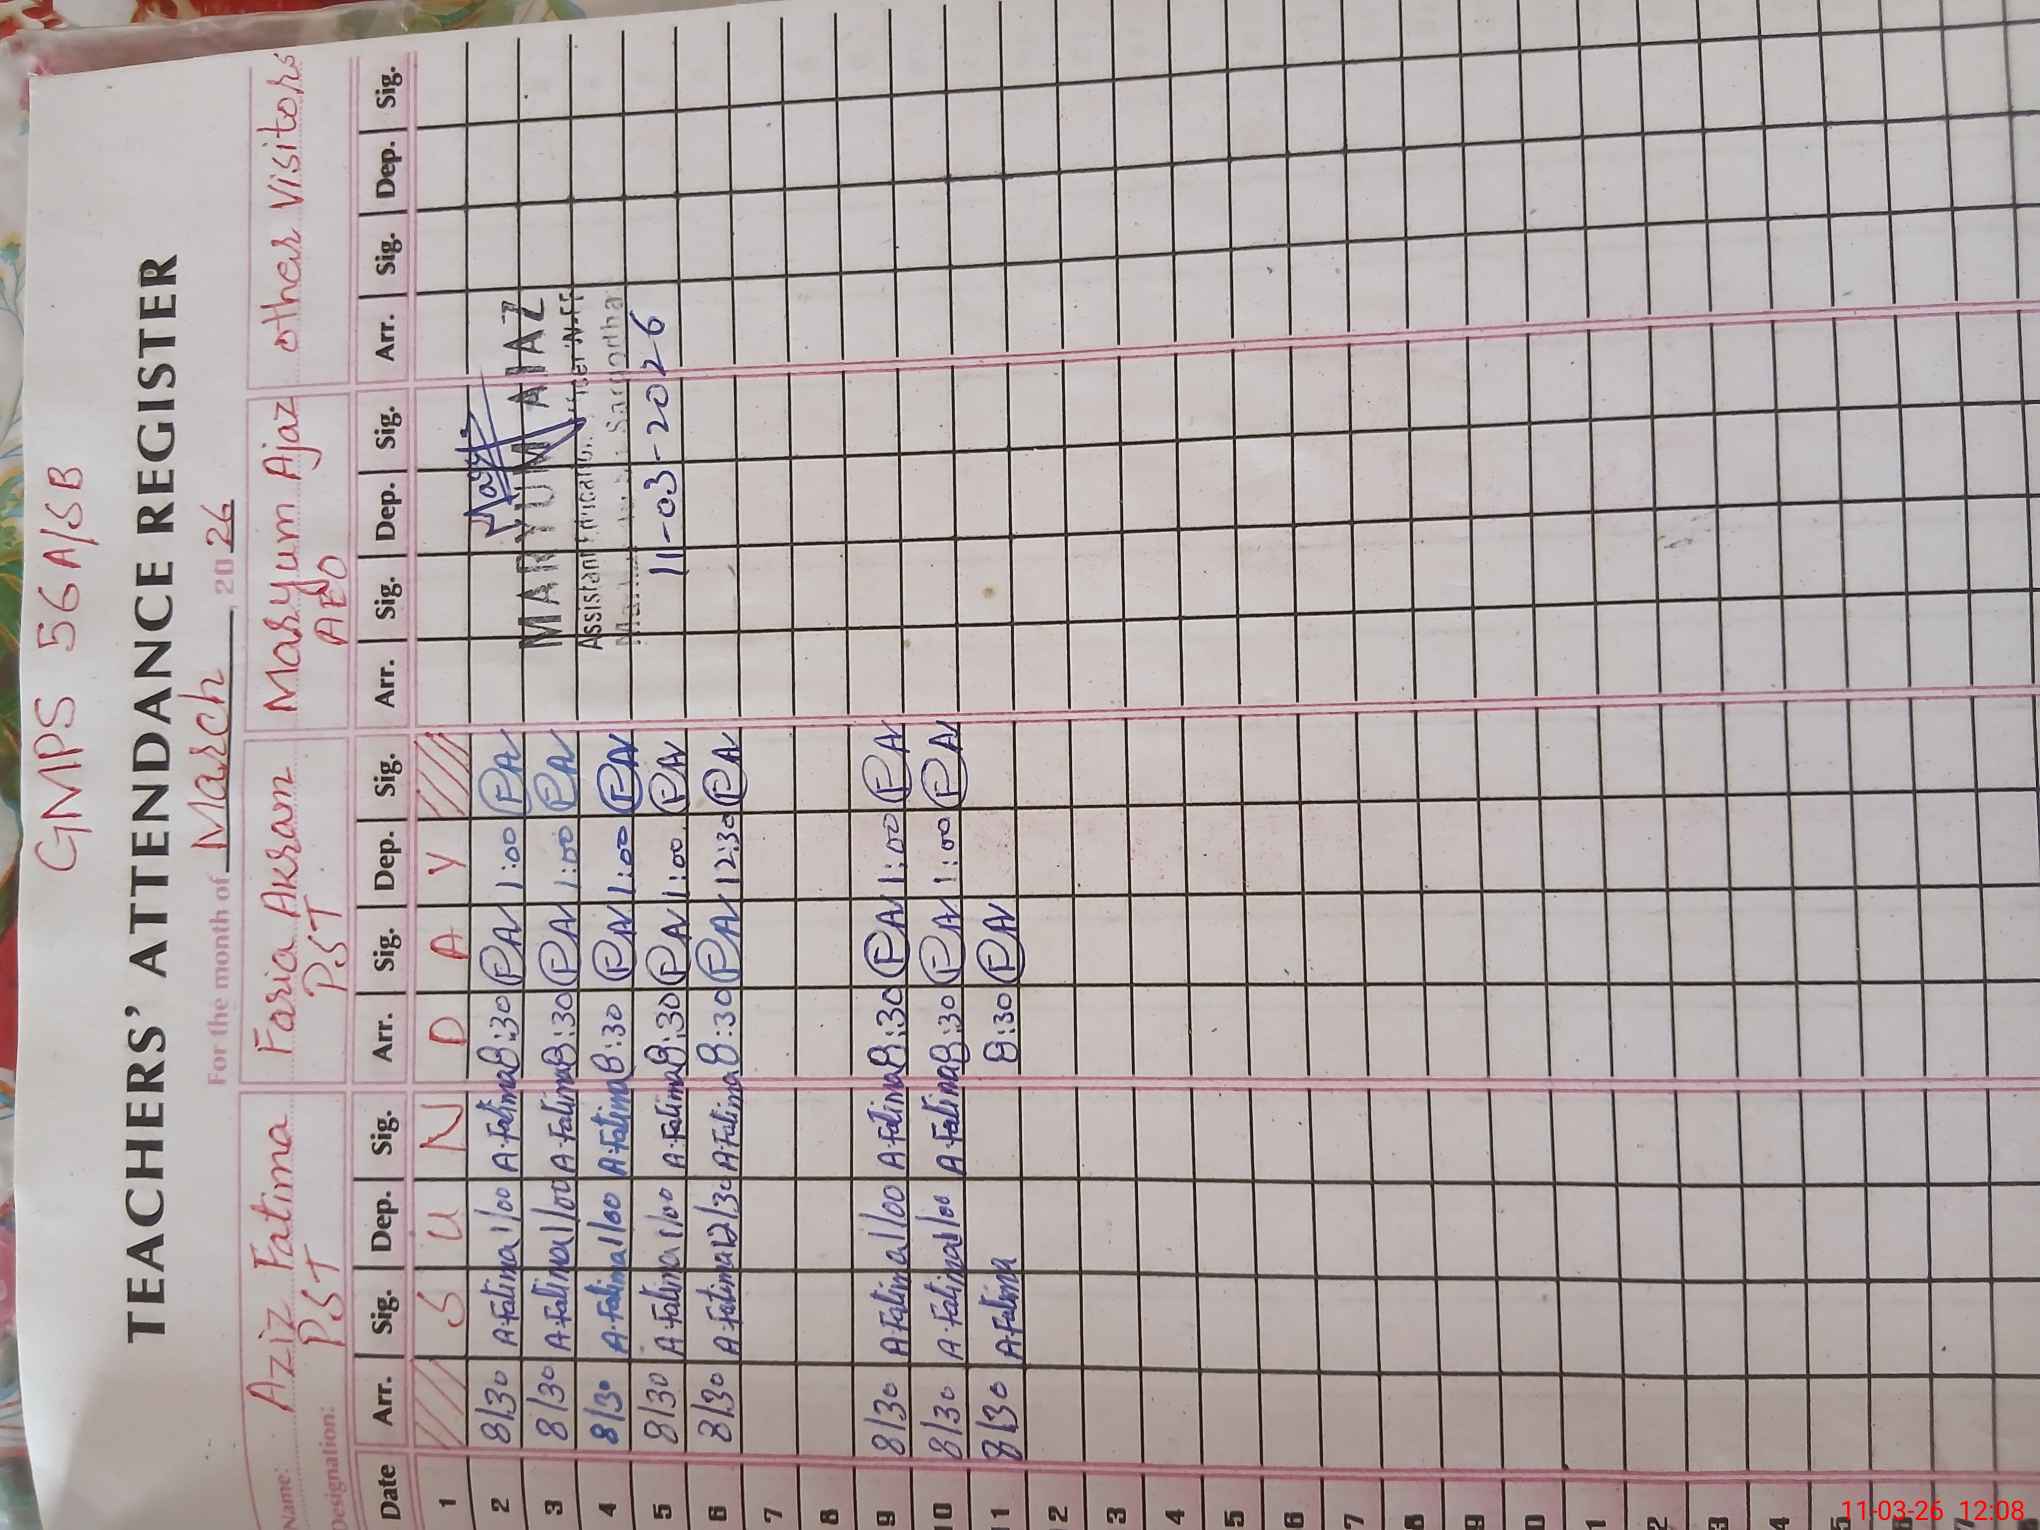 GMPS 56A/SB
TEACHERS' ATTENDANCE REGISTER
For the month of March, 2026
Name: Aziz Fatima Faria Akram Maryum Ajaz other Visitors
Designation: PST PST AEO
Date Arr. Sig. Dep. Sig. Arr. Sig. Dep. Sig. Arr. Sig. Dep. Sig. Arr. Sig. Dep. Sig.
1 S U N D A Y
2 8/30 A.Fatima 1/00 A.Fatima 8:30 FA 1:00 FA
3 8/30 A.Fatima 1/00 A.Fatima 8:30 FA 1:00 FA MARYUM AJAZ
4 8/30 A.Fatima 1/00 A.Fatima 8:30 FA 1:00 FA Assistant
5 8/30 A.Fatima 1/00 A.Fatima 8:30 FA 1:00 FA Sargodha
11-03-2026
6 8/30 A.Fatima 12/30 A.Fatima 8:30 FA 12:30 FA
7
8
9 8/30 A.Fatima 1/00 A.Fatima 8:30 FA 1:00 FA
10 8/30 A.Fatima 1/00 A.Fatima 8:30 FA 1:00 FA
11 8/30 A.Fatima 8:30 FA
12
3
4
5
6
7
8
9
0
1
2
3
4
5
11-03-26 12:08